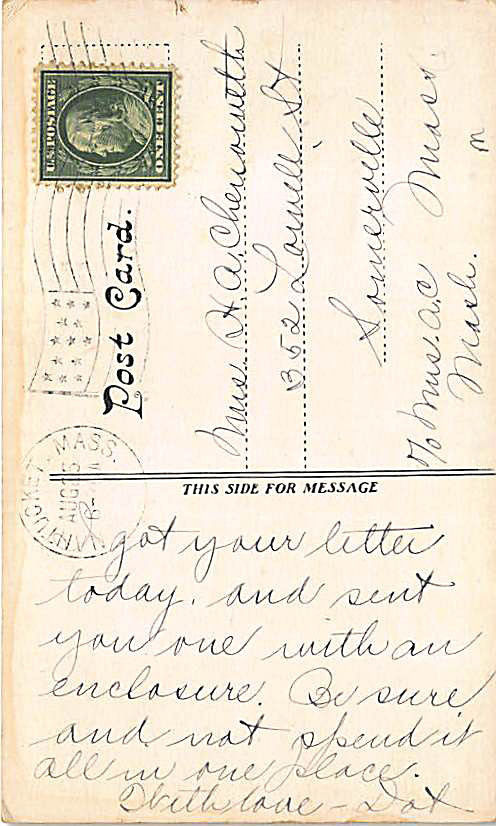 U.S. POSTAGE
ONE CENT
NANTUCKET, MASS.
AUG 25
Post Card.
Mrs H. A. Chenoweth
352 Lowell St
Somerville
Mass.
c/o Mrs. A. C
THIS SIDE FOR MESSAGE
got your letter
today. and sent
you one with an
enclosure. Be sure
and not spend it
all in one place.
With love - Dot